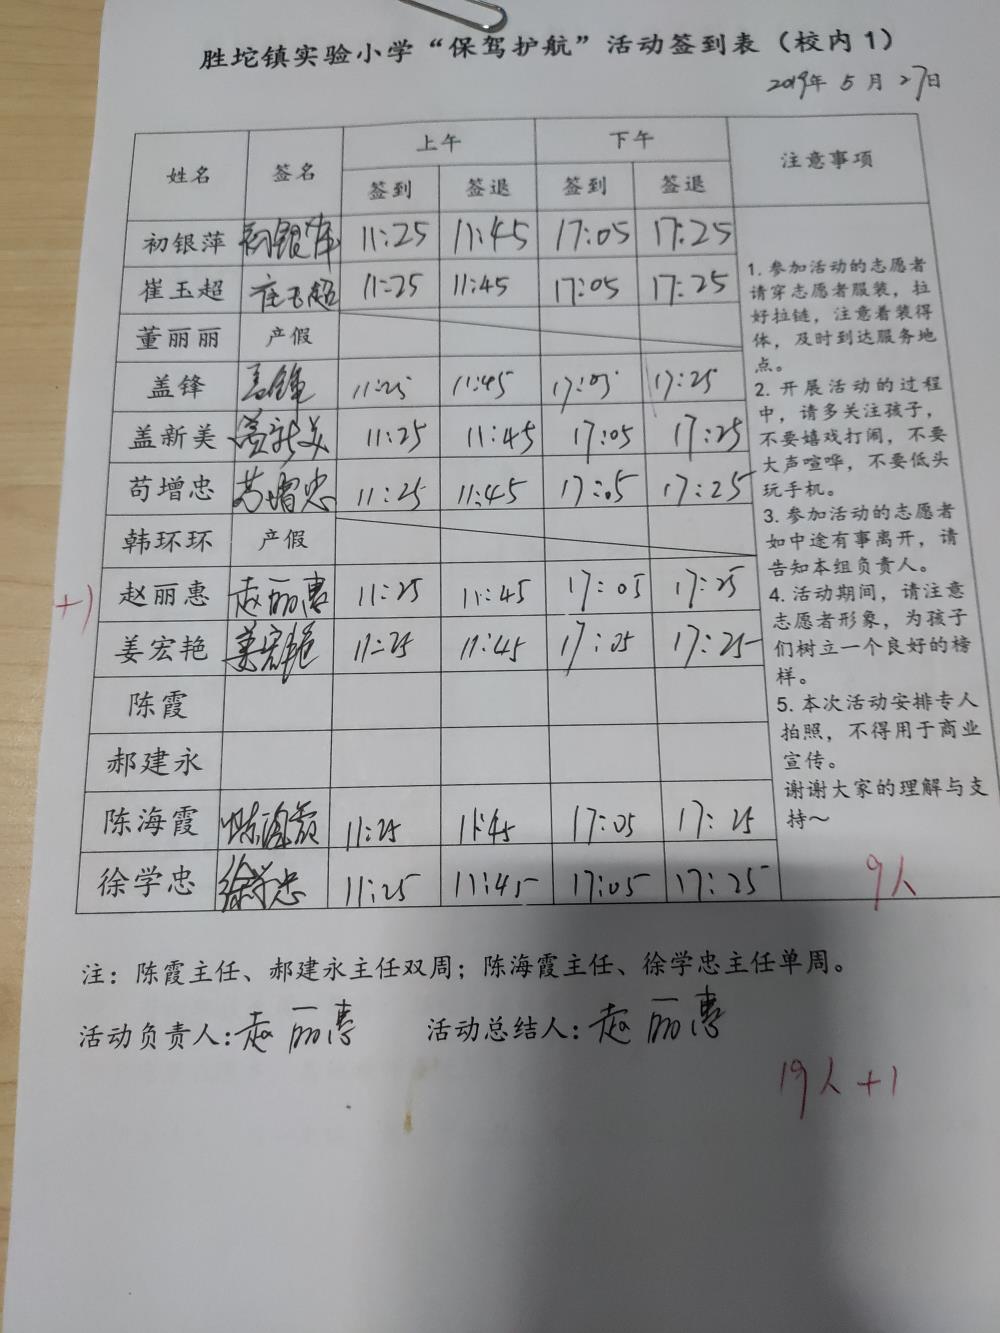 胜坨镇实验小学“保驾护航”活动签到表（校内1）
2019年 5 月 27日
姓名 签名 上午 下午 注意事项
签到 签退 签到 签退
初银萍 初银萍 11:25 11:45 17:05 17:25
崔玉超 崔玉超 11:25 11:45 17:05 17:25
董丽丽 产假
盖锋 盖锋 11:25 11:45 17:05 17:25
盖新美 盖新美 11:25 11:45 17:05 17:25
苟增忠 苟增忠 11:25 11:45 17:05 17:25
韩环环 产假
+1 赵丽惠 赵丽惠 11:25 11:45 17:05 17:25
姜宏艳 姜宏艳 11:25 11:45 17:05 17:25
陈霞
郝建永
陈海霞 陈海霞 11:25 11:45 17:05 17:25
徐学忠 徐学忠 11:25 11:45 17:05 17:25
1. 参加活动的志愿者
请穿志愿者服装，拉
好拉链，注意着装得
体，及时到达服务地
点。
2. 开展活动的过程
中，请多关注孩子，
不要嬉戏打闹，不要
大声喧哗，不要低头
玩手机。
3. 参加活动的志愿者
如中途有事离开，请
告知本组负责人。
4. 活动期间，请注意
志愿者形象，为孩子
们树立一个良好的榜
样。
5. 本次活动安排专人
拍照，不得用于商业
宣传。
谢谢大家的理解与支
持～
9人
注：陈霞主任、郝建永主任双周；陈海霞主任、徐学忠主任单周。
活动负责人:赵丽惠 活动总结人:赵丽惠
19人+1